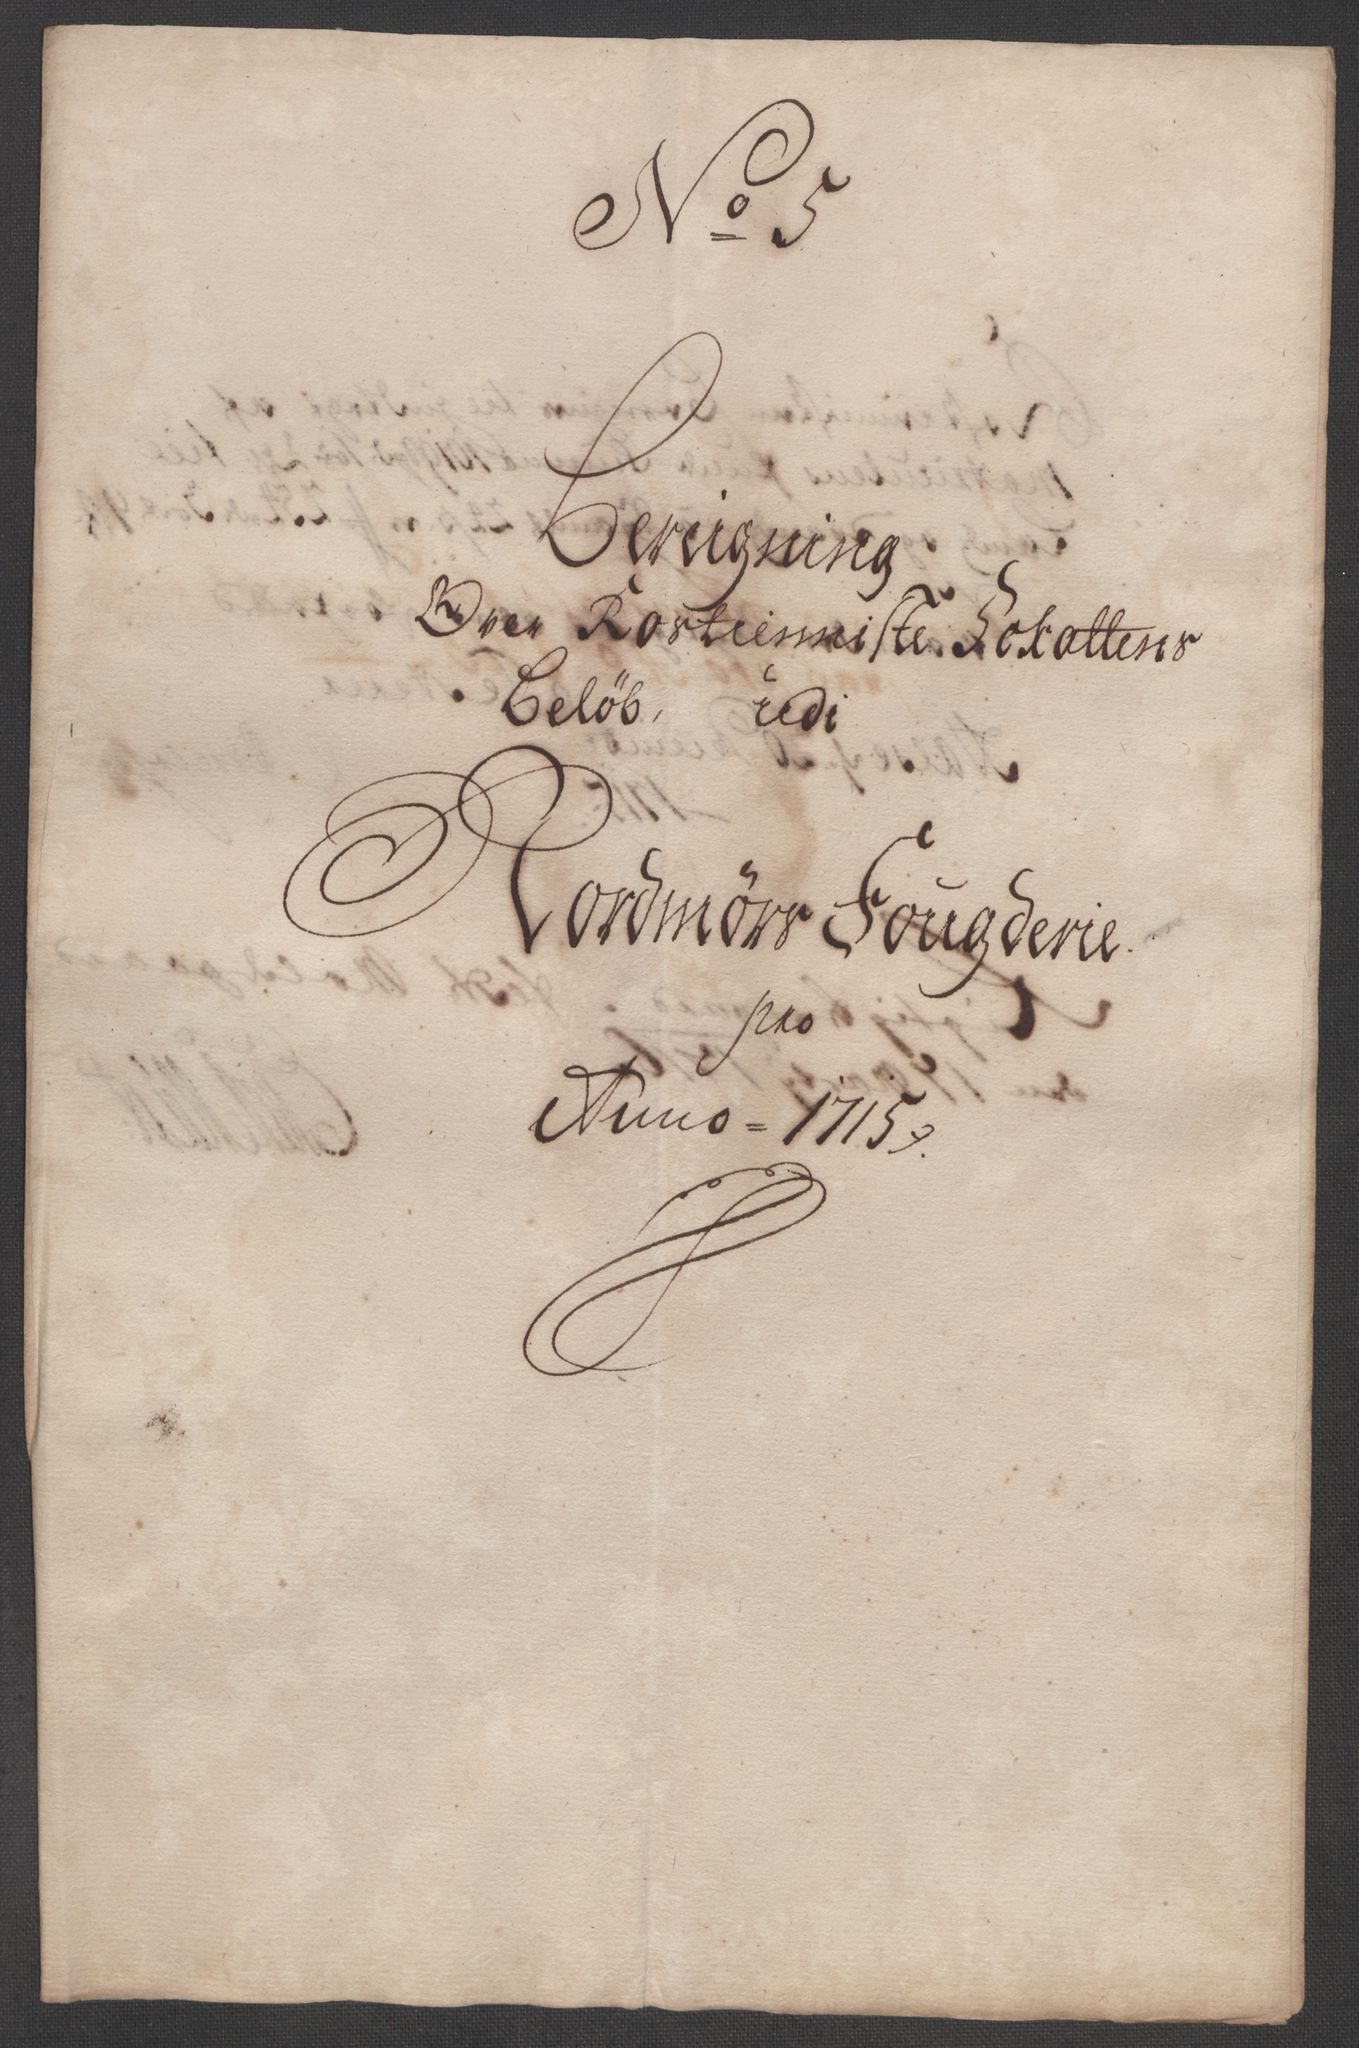 No 5
Bereigning
Over Rostienniste Skattens
Beløb, udi
Nordmørs Fougderie.
pro
Anno = 1715.